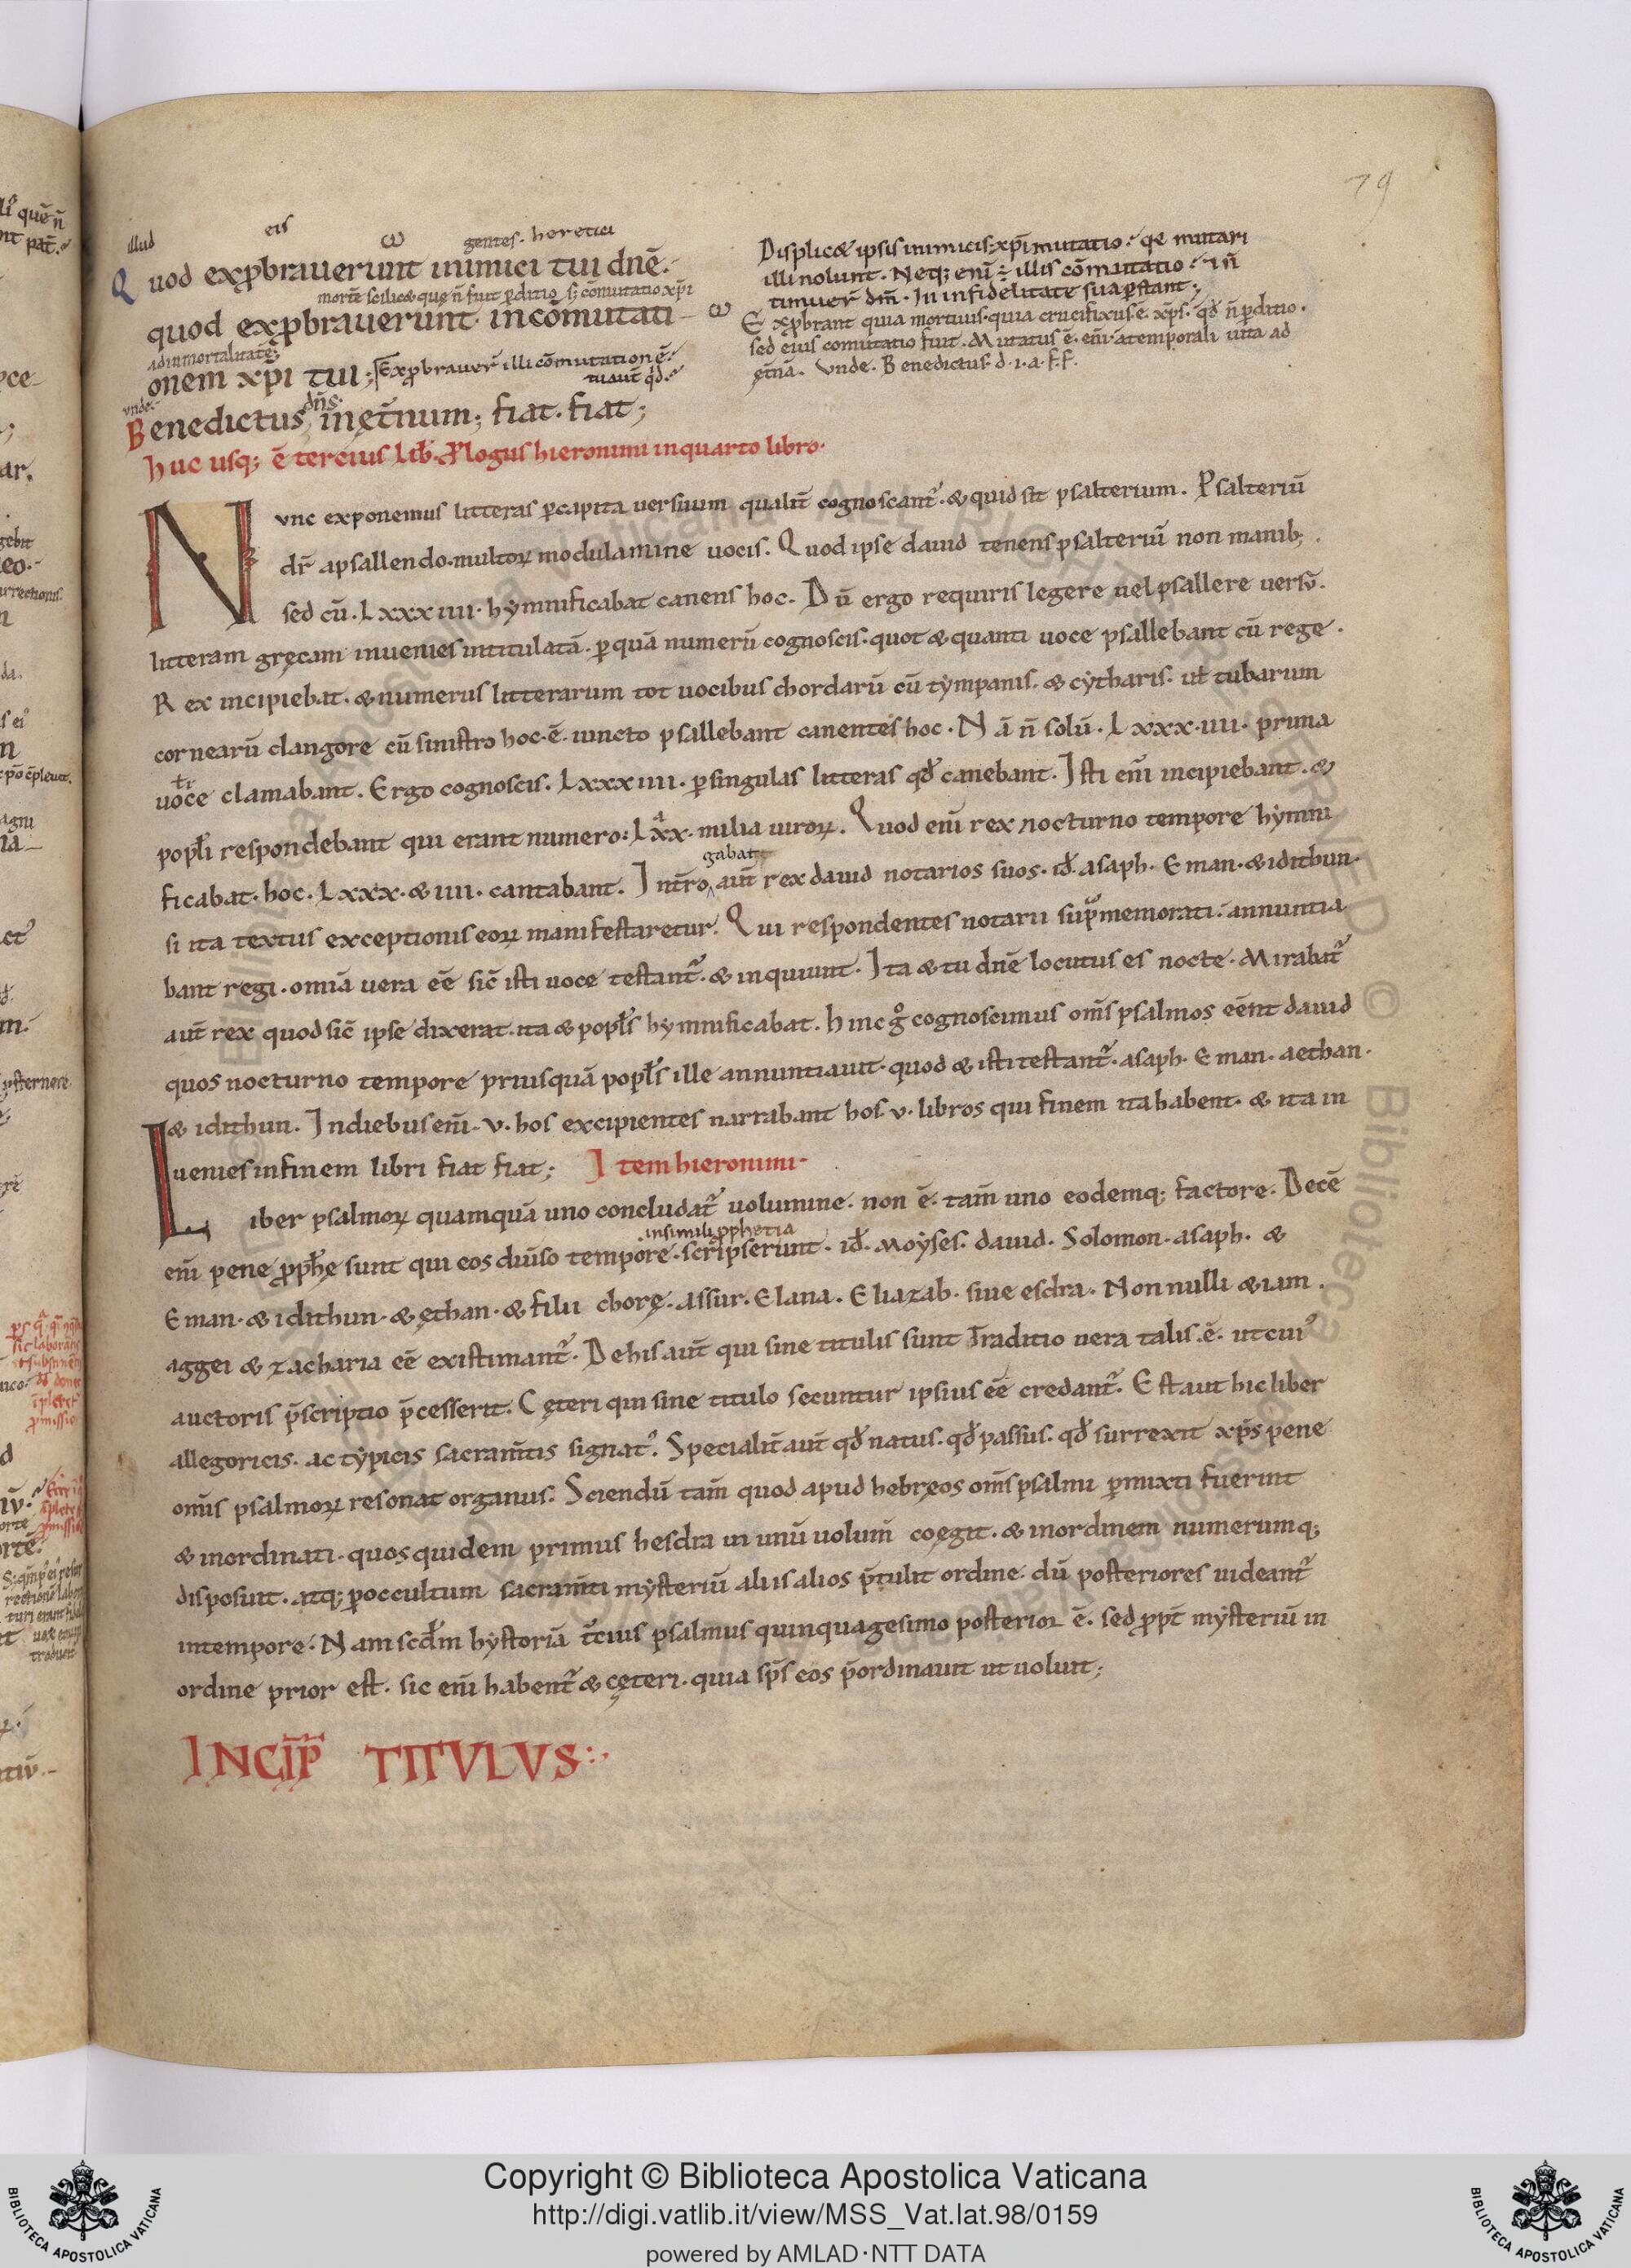 79
illud eis ω gentes. heretici
Quod exprobrauerunt inimici tui dnē.
mortē scilicet quę n̄ fuit perditio s; cōmutatio xp̄i
quod exprobrauerunt incōmutati-
ad inmortalitatē;
onem xp̄i tui; exprobrauer̄ illi cōmutationē.
vnde. dn̄s.
Benedictus inęt̄num; fiat. fiat;
Displicet ipsis inimicis xp̄i mutatio. qe mutari
illi nolunt. Neq; enī ÷ illis cōmutatio. n̄
timuer̄ dm̄. In infidelitate sua perstant;
ω Exprobrant quia mortuus. quia crucifixus ē xp̄s. qđ n̄ perditio.
sed eius comutatio fuit. Mutatus ē. enī a temporali uita ad
ęt̄nā. Vnde. Benedictus. d. i. a. f. f.
Huc usq; ē tercius Lib. Prologus hieronimi inquarto libro.
Nvnc exponemus litteras percapita uersuum qualit̄ cognoscant᷑. & quid sit psalterium. Psalteriū
dr̄ apsallendo. multoꝝ modulamine uocis. Quod ipse dauid tenens psalteriū non manib;.
sed cū. Lxxx iiii. hymnificabat canens hoc. Dū ergo requiris legere uel psallere uersū.
litteram gręcam inuenies intitulatā. per quā numerū cognoscis. quot & quanti uoce psallebant cū rege.
Rex incipiebat. & numerus litterarum tot uocibus chordarū cū tympanis. & cytharis. uł tubarum
cornearū clangore cū sinistro hoc. ē. iuncto psallebant canentes hoc. Nā n̄ solū. Lxxx. iiii. prima
uoce clamabant. Ergo cognoscis. Lxxx iiii. per singulas litteras qđ canebant. Isti enī incipiebant. &
popłi respondebant qui erant numero: Lxx. milia uiroꝝ. Quod enī rex nocturno tempore hymni
gabat
ficabat. hoc. Lxxx. & iiii. cantabant. Int̄ro aut̄ rex dauid notarios suos. iđ. asaph. Eman. & idithun.
si ita textus exceptionis eoꝝ manifestaretur. Qui respondentes notarii supͣmemorati. annuntia
bant regi. omīa uera eē sic̄ isti uoce testant᷑. & inquiunt. Ita & tu dnē locutus es nocte. Mirabat᷑
aut̄ rex quod sic̄ ipse dixerat. ita & popłs hymnificabat. Hinc gͦ cognoscimus om̄s psalmos eēnt dauid
quos nocturno tempore priusquā popłs ille annuntiauit. quod & isti testant᷑. asaph. Eman. aethan.
& idithun. In diebus enī. v. hos excipientes narrabant hos. v. libros qui finem ita habent. & ita in
uenies infinem libri fiat fiat; Item hieronimi.
Liber psalmoꝝ quamquā uno concludat᷑ uolumine. non ē. tam̄ uno eodemq; factore. Decē
insimili prophetia
enī pene prophę sunt qui eos diūso tempore. scripserunt. iđ. Moyses. dauid. Solomon. asaph. &
Eman. & idithun. & ęthan. & filii chorę. Assur. Elana. Eliazab. siue esdra. Non nulli & iam.
aggei & zacharia eē existimant᷑. De his aut̄ qui sine titulis sunt Traditio uera talis. ē. ut cui᷒
auctoris p̄scriptio p̄cesserit. Cęteri qui sine titulo secuntur ipsius eē credant᷑. Est aut hic liber
allegoricis. ac typicis sacram̄tis signat᷒. Specialit̄ aut̄ qđ natus. qđ passus. qđ surrexit xp̄s pene
om̄is psalmoꝝ resonat organus. Sciendū tam̄ quod apud hebręos om̄s psalmi permixti fuerint
& inordinati. quos quidem primus hesdra in unū uolum̄ coęgit. & inordinem numerumq;
disposuit. atq; per occultum sacram̄ti mysteriū aliis alios p̄tulit ordine. dū posteriores uideant᷑
intempore. Nam scđm hystoriā t̄cius psalmus quinquagesimo posterior ē. sed propt̄ mysteriū in
ordine prior est. sic enī habent᷑ & cęteri. quia sp̄s eos p̄ordinauit ut uoluit;
INCIP̄ TITVLVS:.
Copyright © Biblioteca Apostolica Vaticana
http://digi.vatlib.it/view/MSS_Vat.lat.98/0159
powered by AMLAD·NTT DATA
BIBLIOTECA APOSTOLICA VATICANA
BIBLIOTECA APOSTOLICA VATICANA